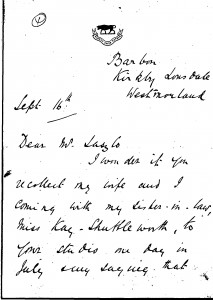 1
Barbon
Kirkby Lonsdale
Westmorland
Sept 16th
Dear Mr. Laszlo
I wonder if you
recollect my wife and I
coming with my sister-in-law,
Miss Kay-Shuttleworth, to
your studio one day in
July &amp; my saying that